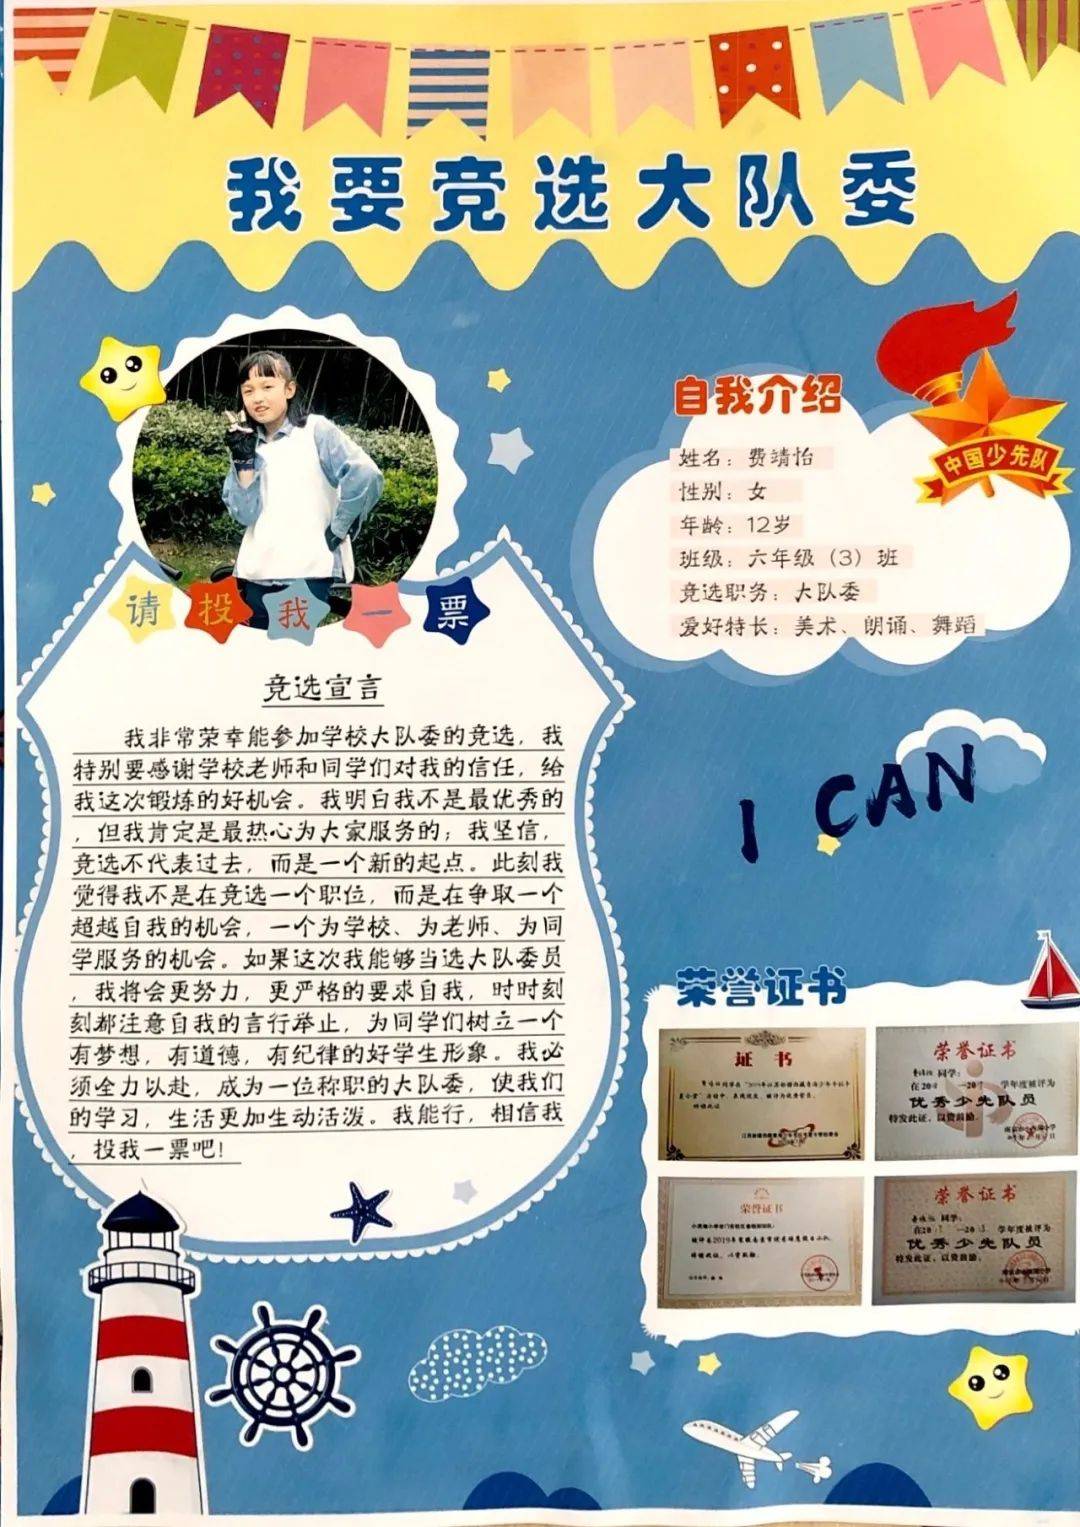 我要竞选大队委
自我介绍
中国少先队
姓名：费靖怡
性别：女
年龄：12岁
班级：六年级（3）班
竞选职务：大队委
爱好特长：美术、朗诵、舞蹈
请投我一票
竞选宣言
我非常荣幸能参加学校大队委的竞选，我
特别要感谢学校老师和同学们对我的信任，给
我这次锻炼的好机会。我明白我不是最优秀的
，但我肯定是最热心为大家服务的；我坚信，
竞选不代表过去，而是一个新的起点。此刻我
觉得我不是在竞选一个职位，而是在争取一个
超越自我的机会，一个为学校、为老师、为同
学服务的机会。如果这次我能够当选大队委员
，我将会更努力，更严格的要求自我，时时刻
刻都注意自我的言行举止，为同学们树立一个
有梦想，有道德，有纪律的好学生形象。我必
须全力以赴，成为一位称职的大队委，使我们
的学习，生活更加生动活泼。我能行，相信我
，投我一票吧！
I CAN
荣誉证书
证书
特颁此证
荣誉证书
同学：
学年度被评为
优秀少先队员
特发此证，以资鼓励。
荣誉证书
特颁此证，以资鼓励。
荣誉证书
同学：
学年度被评为
优秀少先队员
特发此证，以资鼓励。